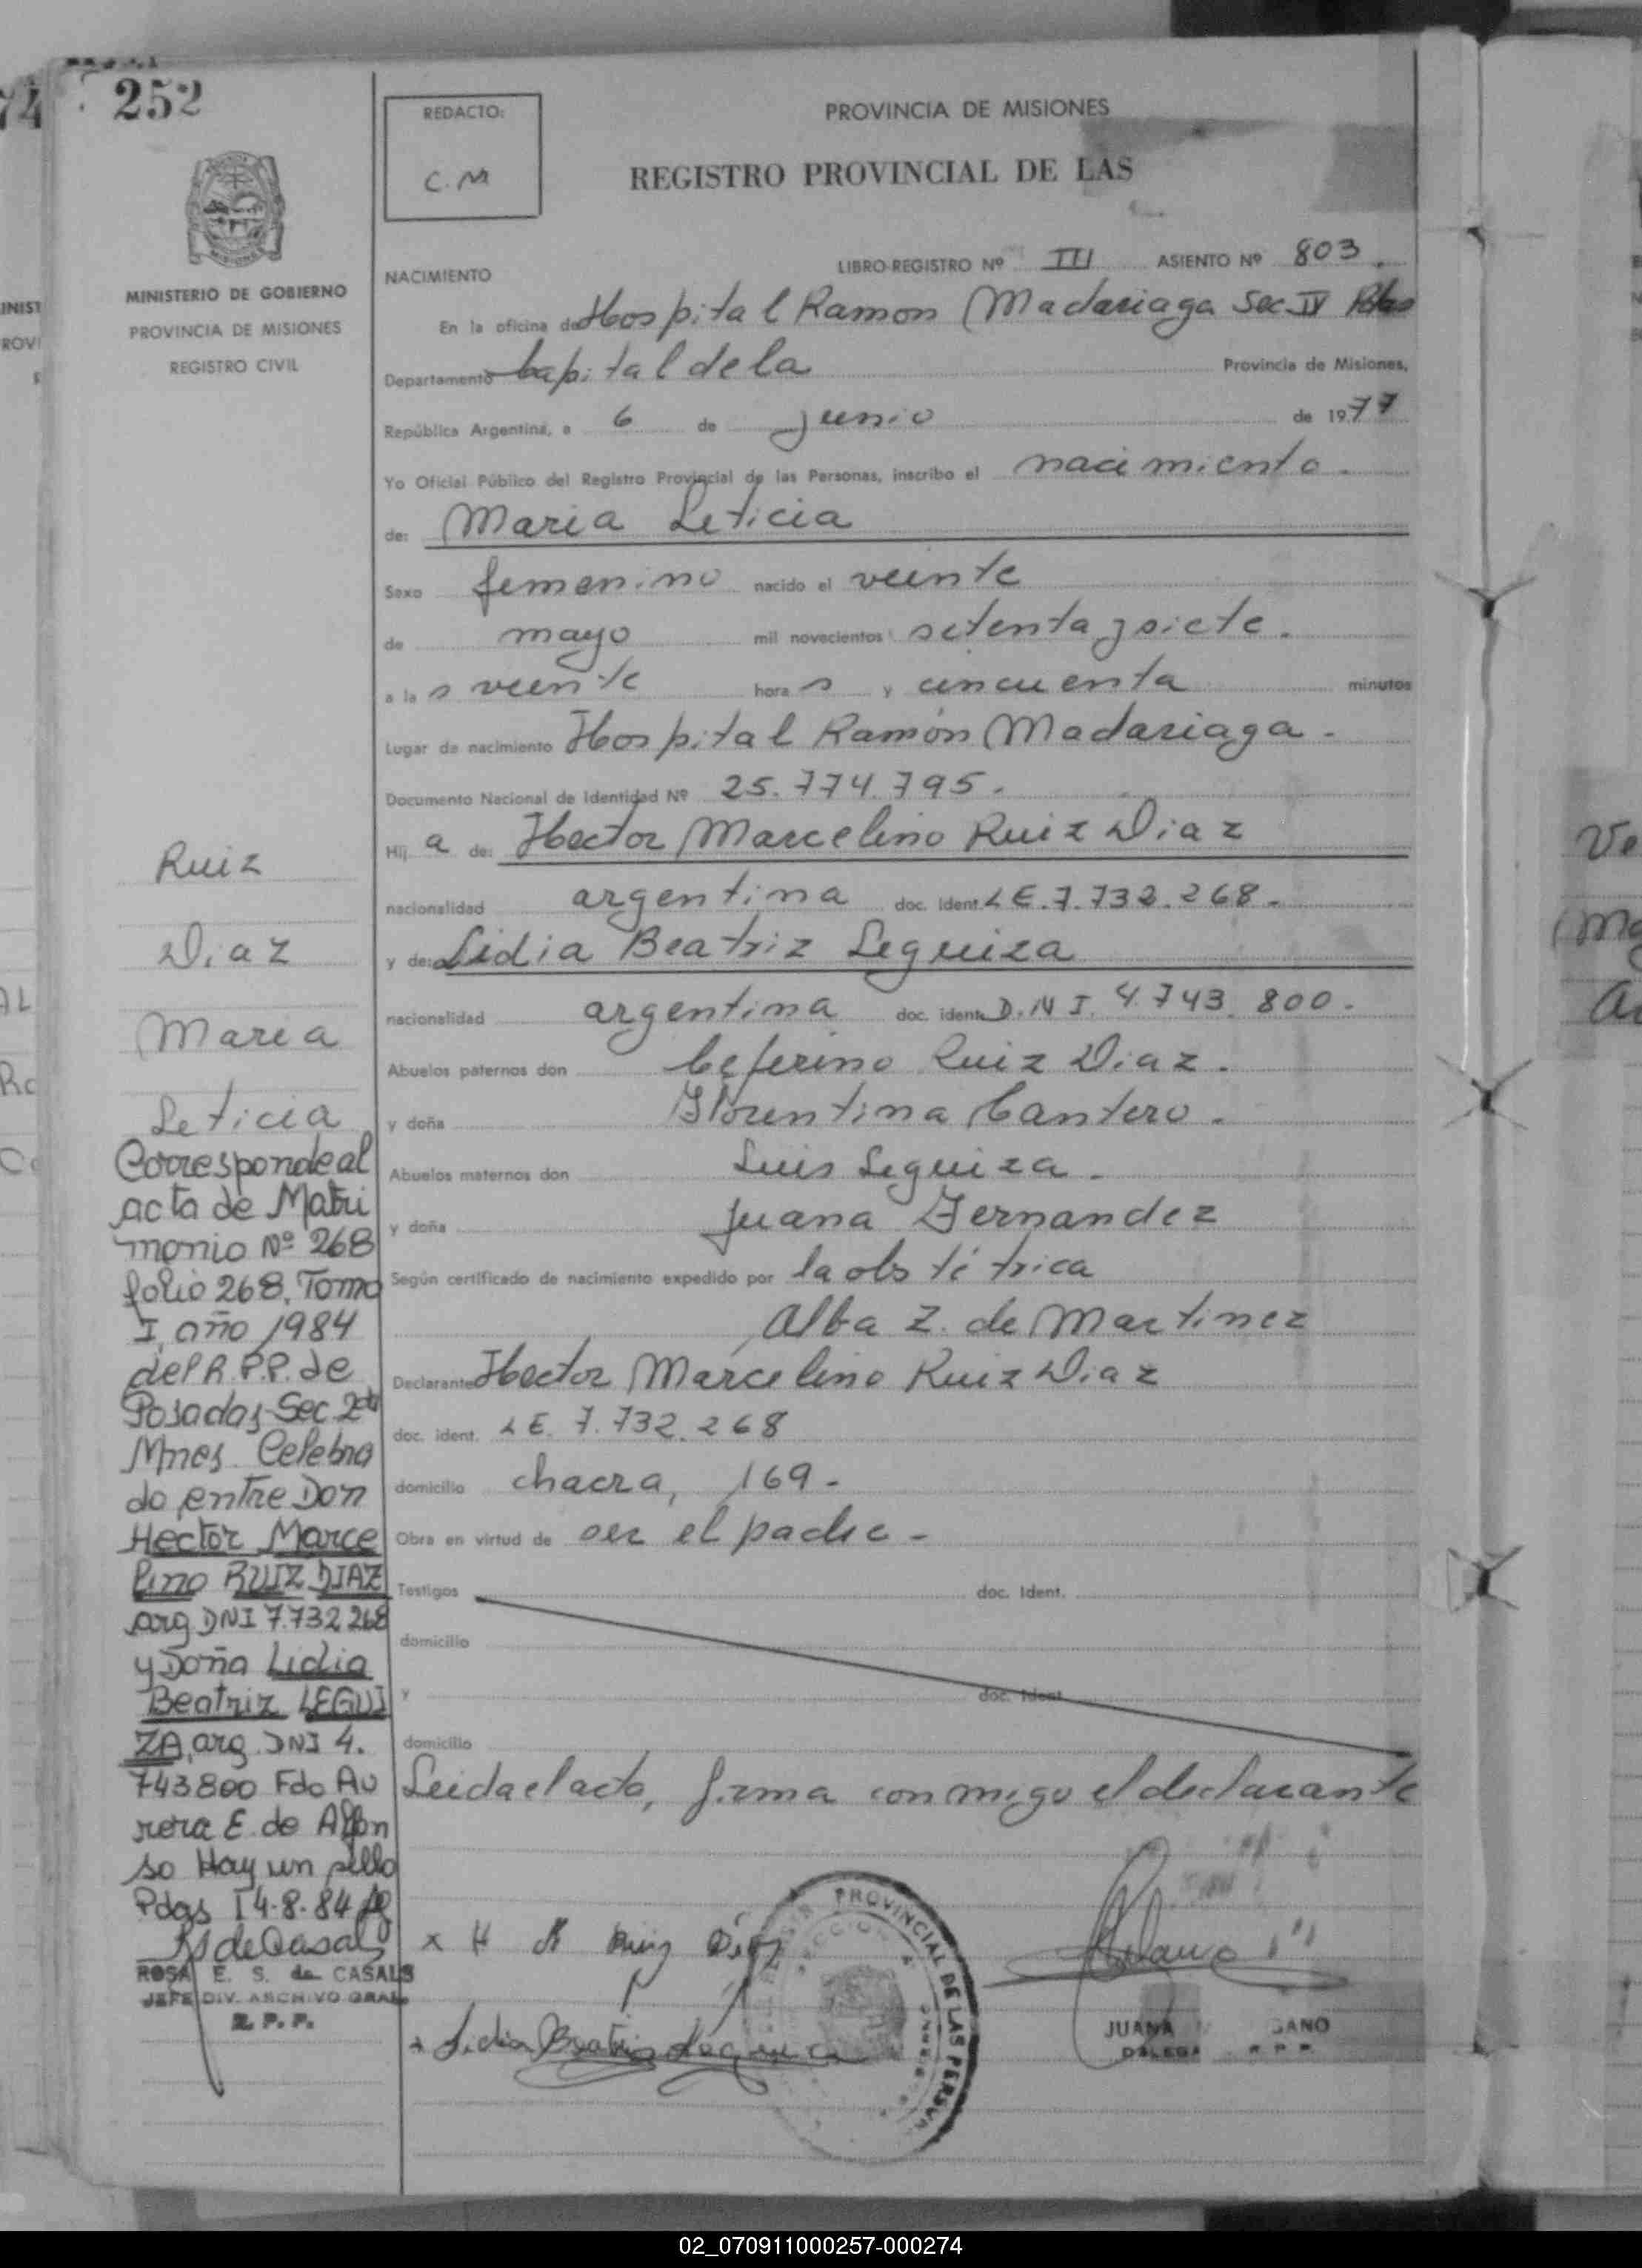 252
REDACTO:
C.M
PROVINCIA DE MISIONES
REGISTRO PROVINCIAL DE LAS
MINISTERIO DE GOBIERNO
PROVINCIA DE MISIONES
REGISTRO CIVIL
NACIMIENTO
LIBRO-REGISTRO Nº III ASIENTO Nº 803.
En la oficina de Hospital Ramon Madariaga Sec IV Pdas
Departamento Capital de la Provincia de Misiones,
República Argentina, a 6 de junio de 1977
Yo Oficial Público del Registro Provincial de las Personas, inscribo el nacimiento.
de: Maria Leticia
Sexo femenino nacido el veinte
de mayo mil novecientos setenta y siete.
a la s veinte hora s y cincuenta minutos
Lugar de nacimiento Hospital Ramón Madariaga.
Documento Nacional de Identidad Nº 25.774.795.
Hij a de: Hector Marcelino Ruiz Diaz
nacionalidad argentina doc. Ident. LE.7.732.268.
y de: Lidia Beatriz Leguiza
nacionalidad argentina doc. ident. D.N I. 4.743.800.
Abuelos paternos don Ceferino Ruiz Diaz.
y doña Florentina Cantero.
Abuelos maternos don Luis Leguiza.
y doña Juana Fernandez
Según certificado de nacimiento expedido por la obstétrica
Alba Z. de Martinez
Declarante Hector Marcelino Ruiz Diaz
doc. ident. LE. 7.732.268
domicilio chacra, 169.
Obra en virtud de ser el padre.
Testigos doc. Ident.
domicilio
y doc. Ident
domicilio
Leida el acta, firma conmigo el declarante
x H M Ruiz Díaz
x Lidia Beatriz Leguiza
PROVINCIAL DE LAS PERSON
JUANA
R P P
Ruiz
Diaz
Maria
Leticia
Corresponde al
acta de Matri
monio Nº 268
folio 268, Tomo
I, año 1984
del R.P.P. de
Posadas-Sec 2da
Mnes. Celebra
do entre Don
Hector Marce
lino RUIZ DIAZ
arg DNI 7.732 268
y Doña Lidia
Beatriz LEGUI
ZA, arg. DNI 4.
743800 Fdo Au
rora E. de Alfon
so Hay un sello
Pdas 14-8-84
RS de Casals
ROSA E. S. de CASALS
JEFE DIV. ARCHIVO GRAL.
R. P. P.
02_070911000257-000274